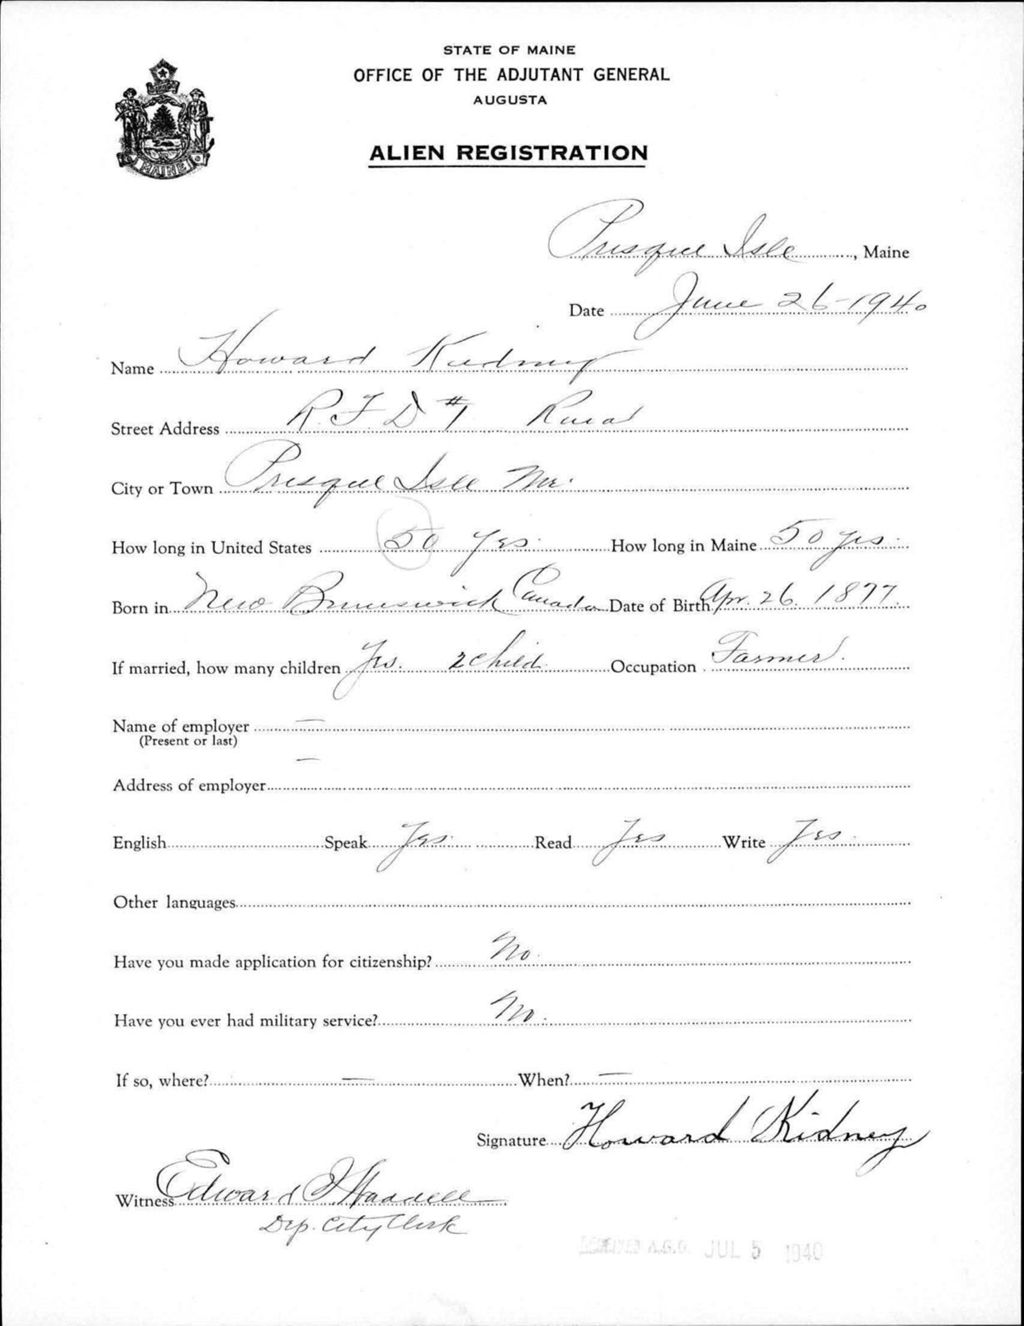 STATE OF MAINE
OFFICE OF THE ADJUTANT GENERAL
AUGUSTA
MAINE
ALIEN REGISTRATION
Presque Isle, Maine
Date June 26-1940
Name Howard Kidney
Street Address R.F.D #1 Rural
City or Town Presque Isle Me.
How long in United States 50 Yes. How long in Maine 50 yrs.
Born in New Brunswick Canada Date of Birth Apr. 26. 1877.
If married, how many children Yes. 2 child. Occupation Farmer.
Name of employer —
(Present or last)
Address of employer —
English Speak Yes. Read Yes Write Yes.
Other languages
Have you made application for citizenship? No.
Have you ever had military service? No.
If so, where? — When? —
Signature Howard Kidney
Witness Edward I Waddell
Dep. City Clerk
RECEIVED A.G.O. JUL 5 1940